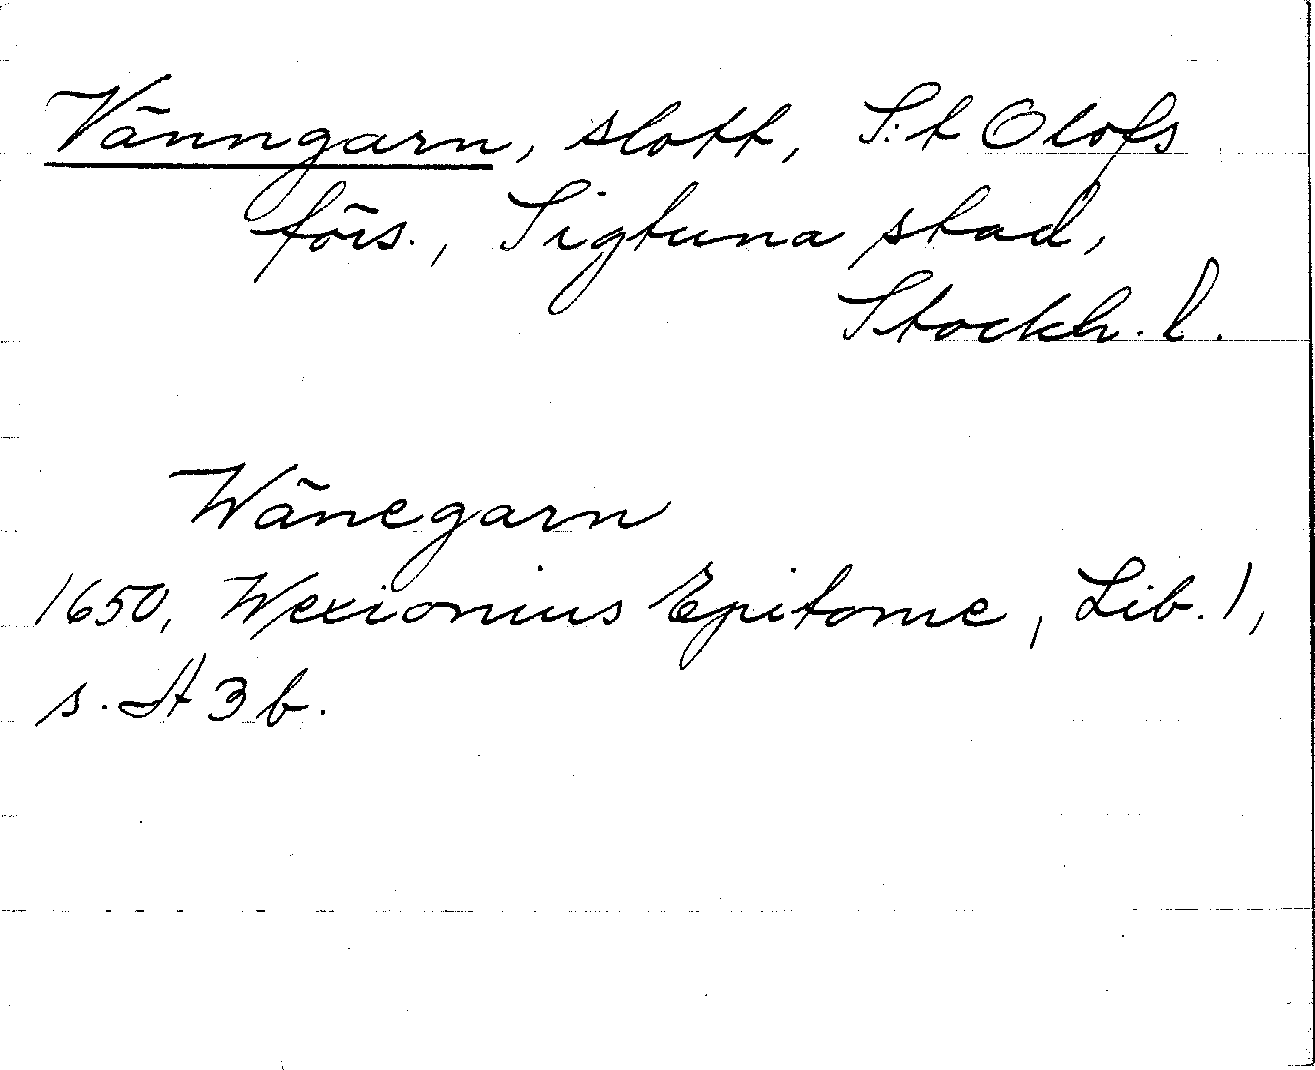 Vänngarn, slott, S:t Olofs
förs., Sigtuna stad,
Stockh. l.
Wänegarn
1650, Wexionius Epitome, Lib. 1,
s. A 3 b.